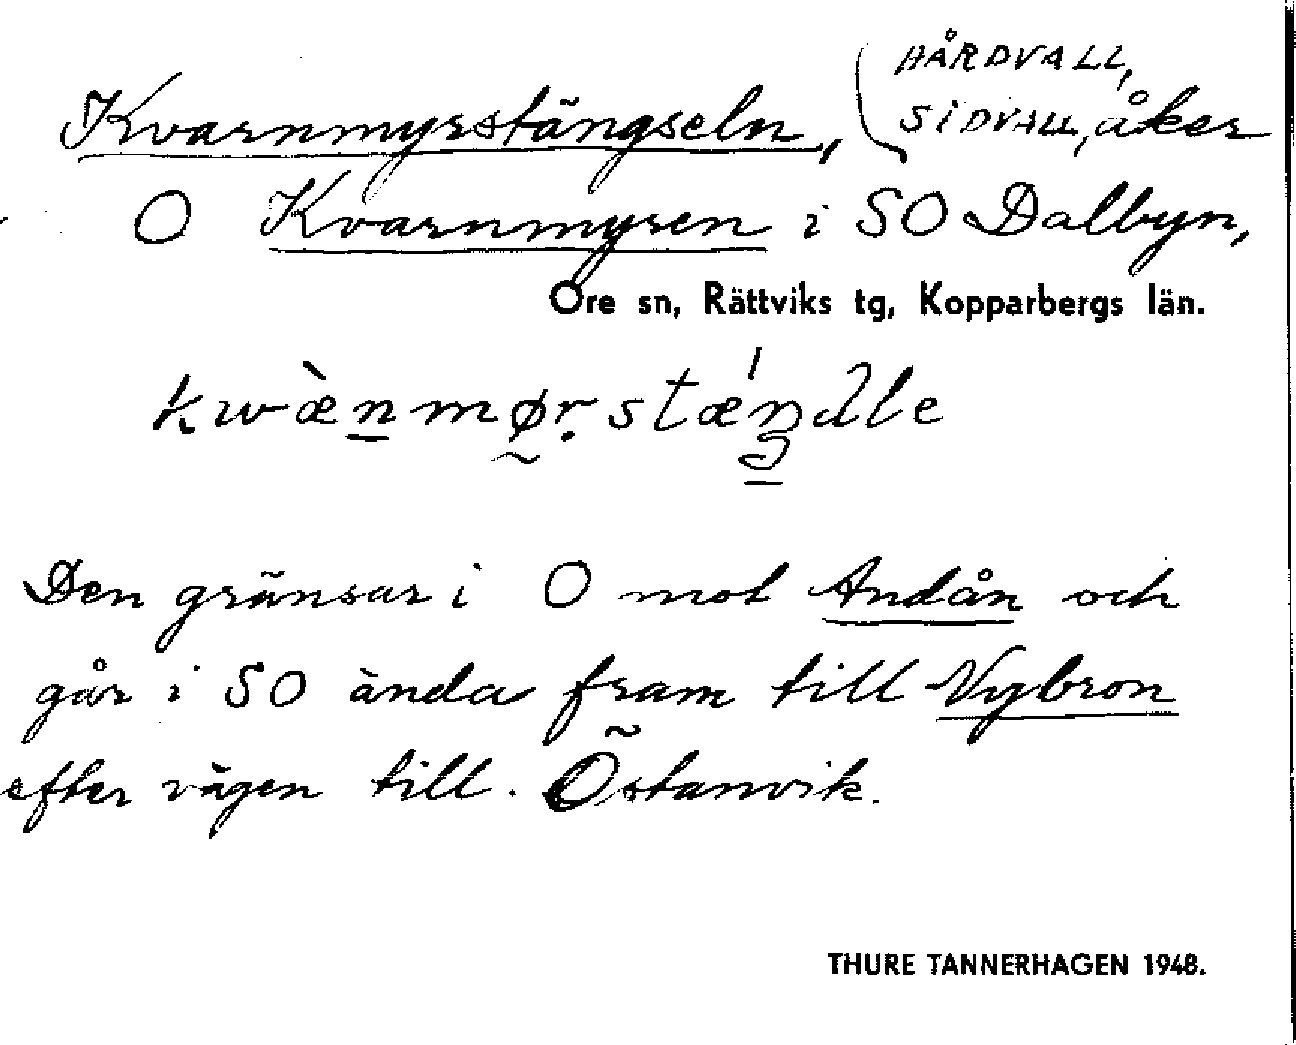 Kvarnmyrstängseln, (HÅRDVALL,
SIDVALL, åker
O Kvarnmyren i SO Dalbyn,
Ore sn, Rättviks tg, Kopparbergs län.
Den gränsar i O mot Andån och
går i SO ända fram till Vybron
efter vägen till Östanvik.
THURE TANNERHAGEN 1948.